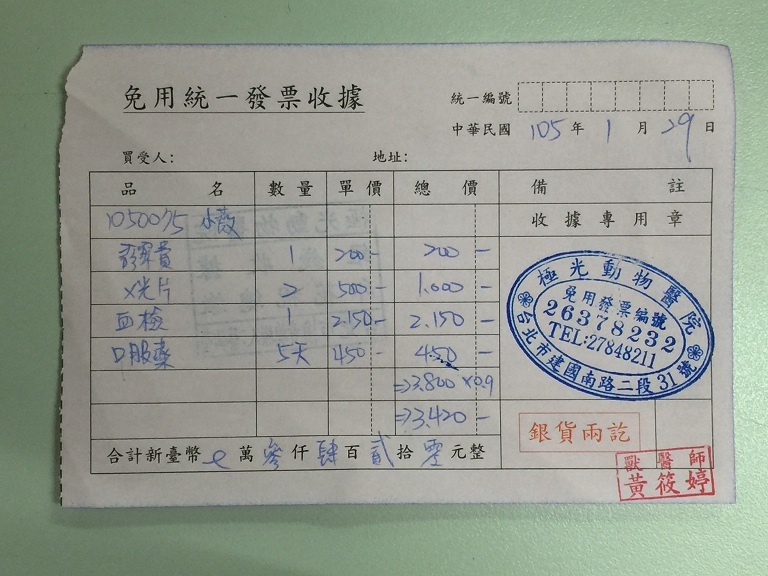 免用統一發票收據
統一編號
中華民國 105 年 1 月 29 日
買受人： 地址：
品名 數量 單價 總價 備註
1050075 小薇 收據專用章
診察費 1 200 200 —
X光片 2 500 — 1,000 —
血檢 1 2,150 — 2,150 —
口服藥 5天 450 450 —
⇒3,800 ×0.9
⇒3,420 —
極光動物醫院
免用發票編號
26378232
TEL:27848211
台北市建國南路二段31號
銀貨兩訖
合計新臺幣 萬 參 仟 肆 百 貳 拾 零 元整
獸醫師
黃筱婷